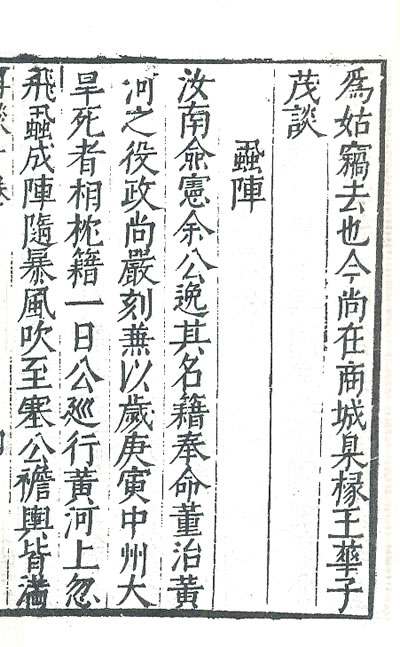 爲姑竊去也今尚在商城臬椽王華子
茂談
蝨陣
汝南僉憲余公逸其名籍奉命董治黄
河之役政尚嚴刻兼以歲庚寅中州大
旱死者相枕籍一日公廵行黄河上忽
飛蝨成陣隨暴風吹至塞公襜輿皆滿